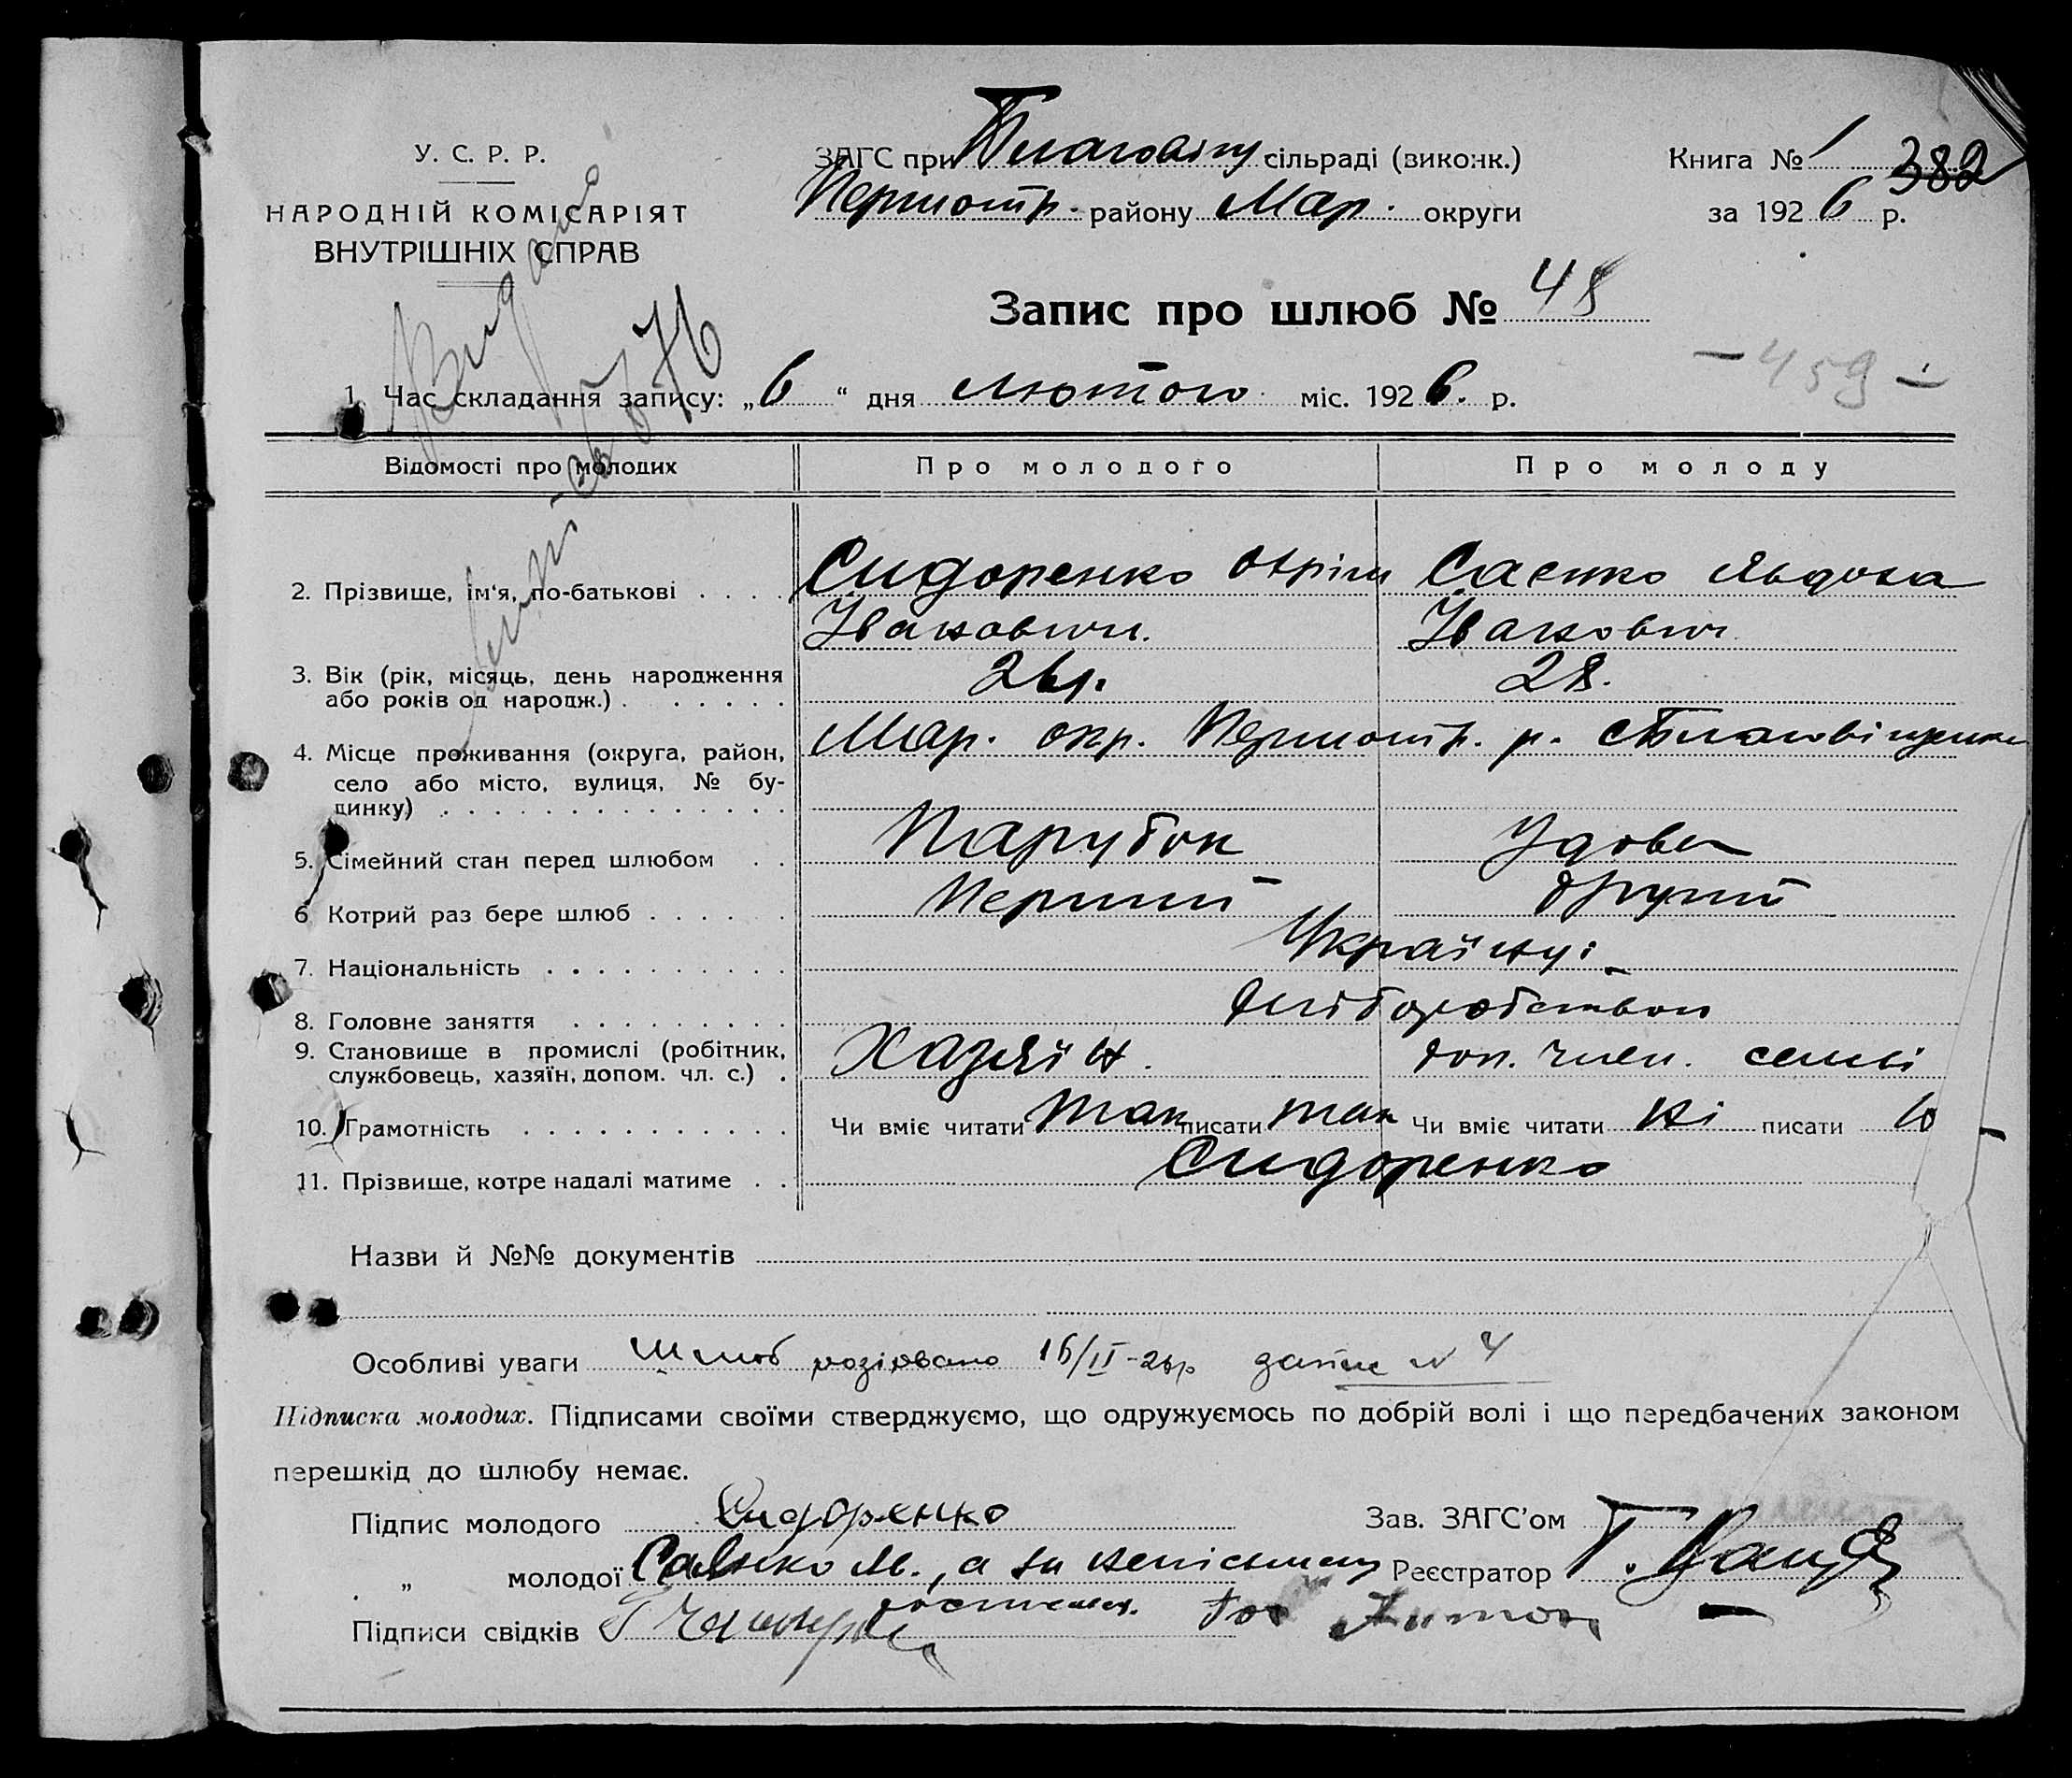 У. С. Р. Р.
НАРОДНІЙ КОМІСАРІЯТ
ВНУТРІШНІХ СПРАВ
ЗАГС при сільраді (виконк.)
Першотр. району Мар. округи
Книга № 1 382
за 1926 р.
Запис про шлюб № 48
- 459 -
1. Час складання запису: „6“ дня лютого міс. 1926. р.
Відомості про молодих
Про молодого
Про молоду
2. Прізвище, ім'я, по-батькові . . . .
Сидоренко
Іванович.
Саєнко
Іванович
3. Вік (рік, місяць, день народження
або років од народж.) . . . . . .
26р.
28.
4. Місце проживання (округа, район,
село або місто, вулиця, № бу-
динку) . . . . . . . . . . . . . .
Мар. окр. Першотр. р.
5. Сімейний стан перед шлюбом . .
Парубок
Удова
6 Котрий раз бере шлюб . . . . . .
Перший
другий
7. Національність . . . . . . . . . .
Українці
8. Головне заняття . . . . . . . . .
9. Становище в промислі (робітник,
службовець, хазяїн, допом. чл. с.) .
Хазяїн.
доп. член. семьі
10. Грамотність . . . . . . . . . . .
Чи вміє читати так писати так
Чи вміє читати ні писати
11. Прізвище, котре надалі матиме . .
Сидоренко
Назви й №№ документів
Особливі уваги Шлюб розірвано 16/II-26р запис N 4
Підписка молодих. Підписами своїми стверджуємо, що одружуємось по добрій волі і що передбачених законом
перешкід до шлюбу немає.
Підпис молодого Сидоренко
Зав. ЗАГС'ом
„ молодої Саєнко
Реєстратор Г.
Підписи свідків